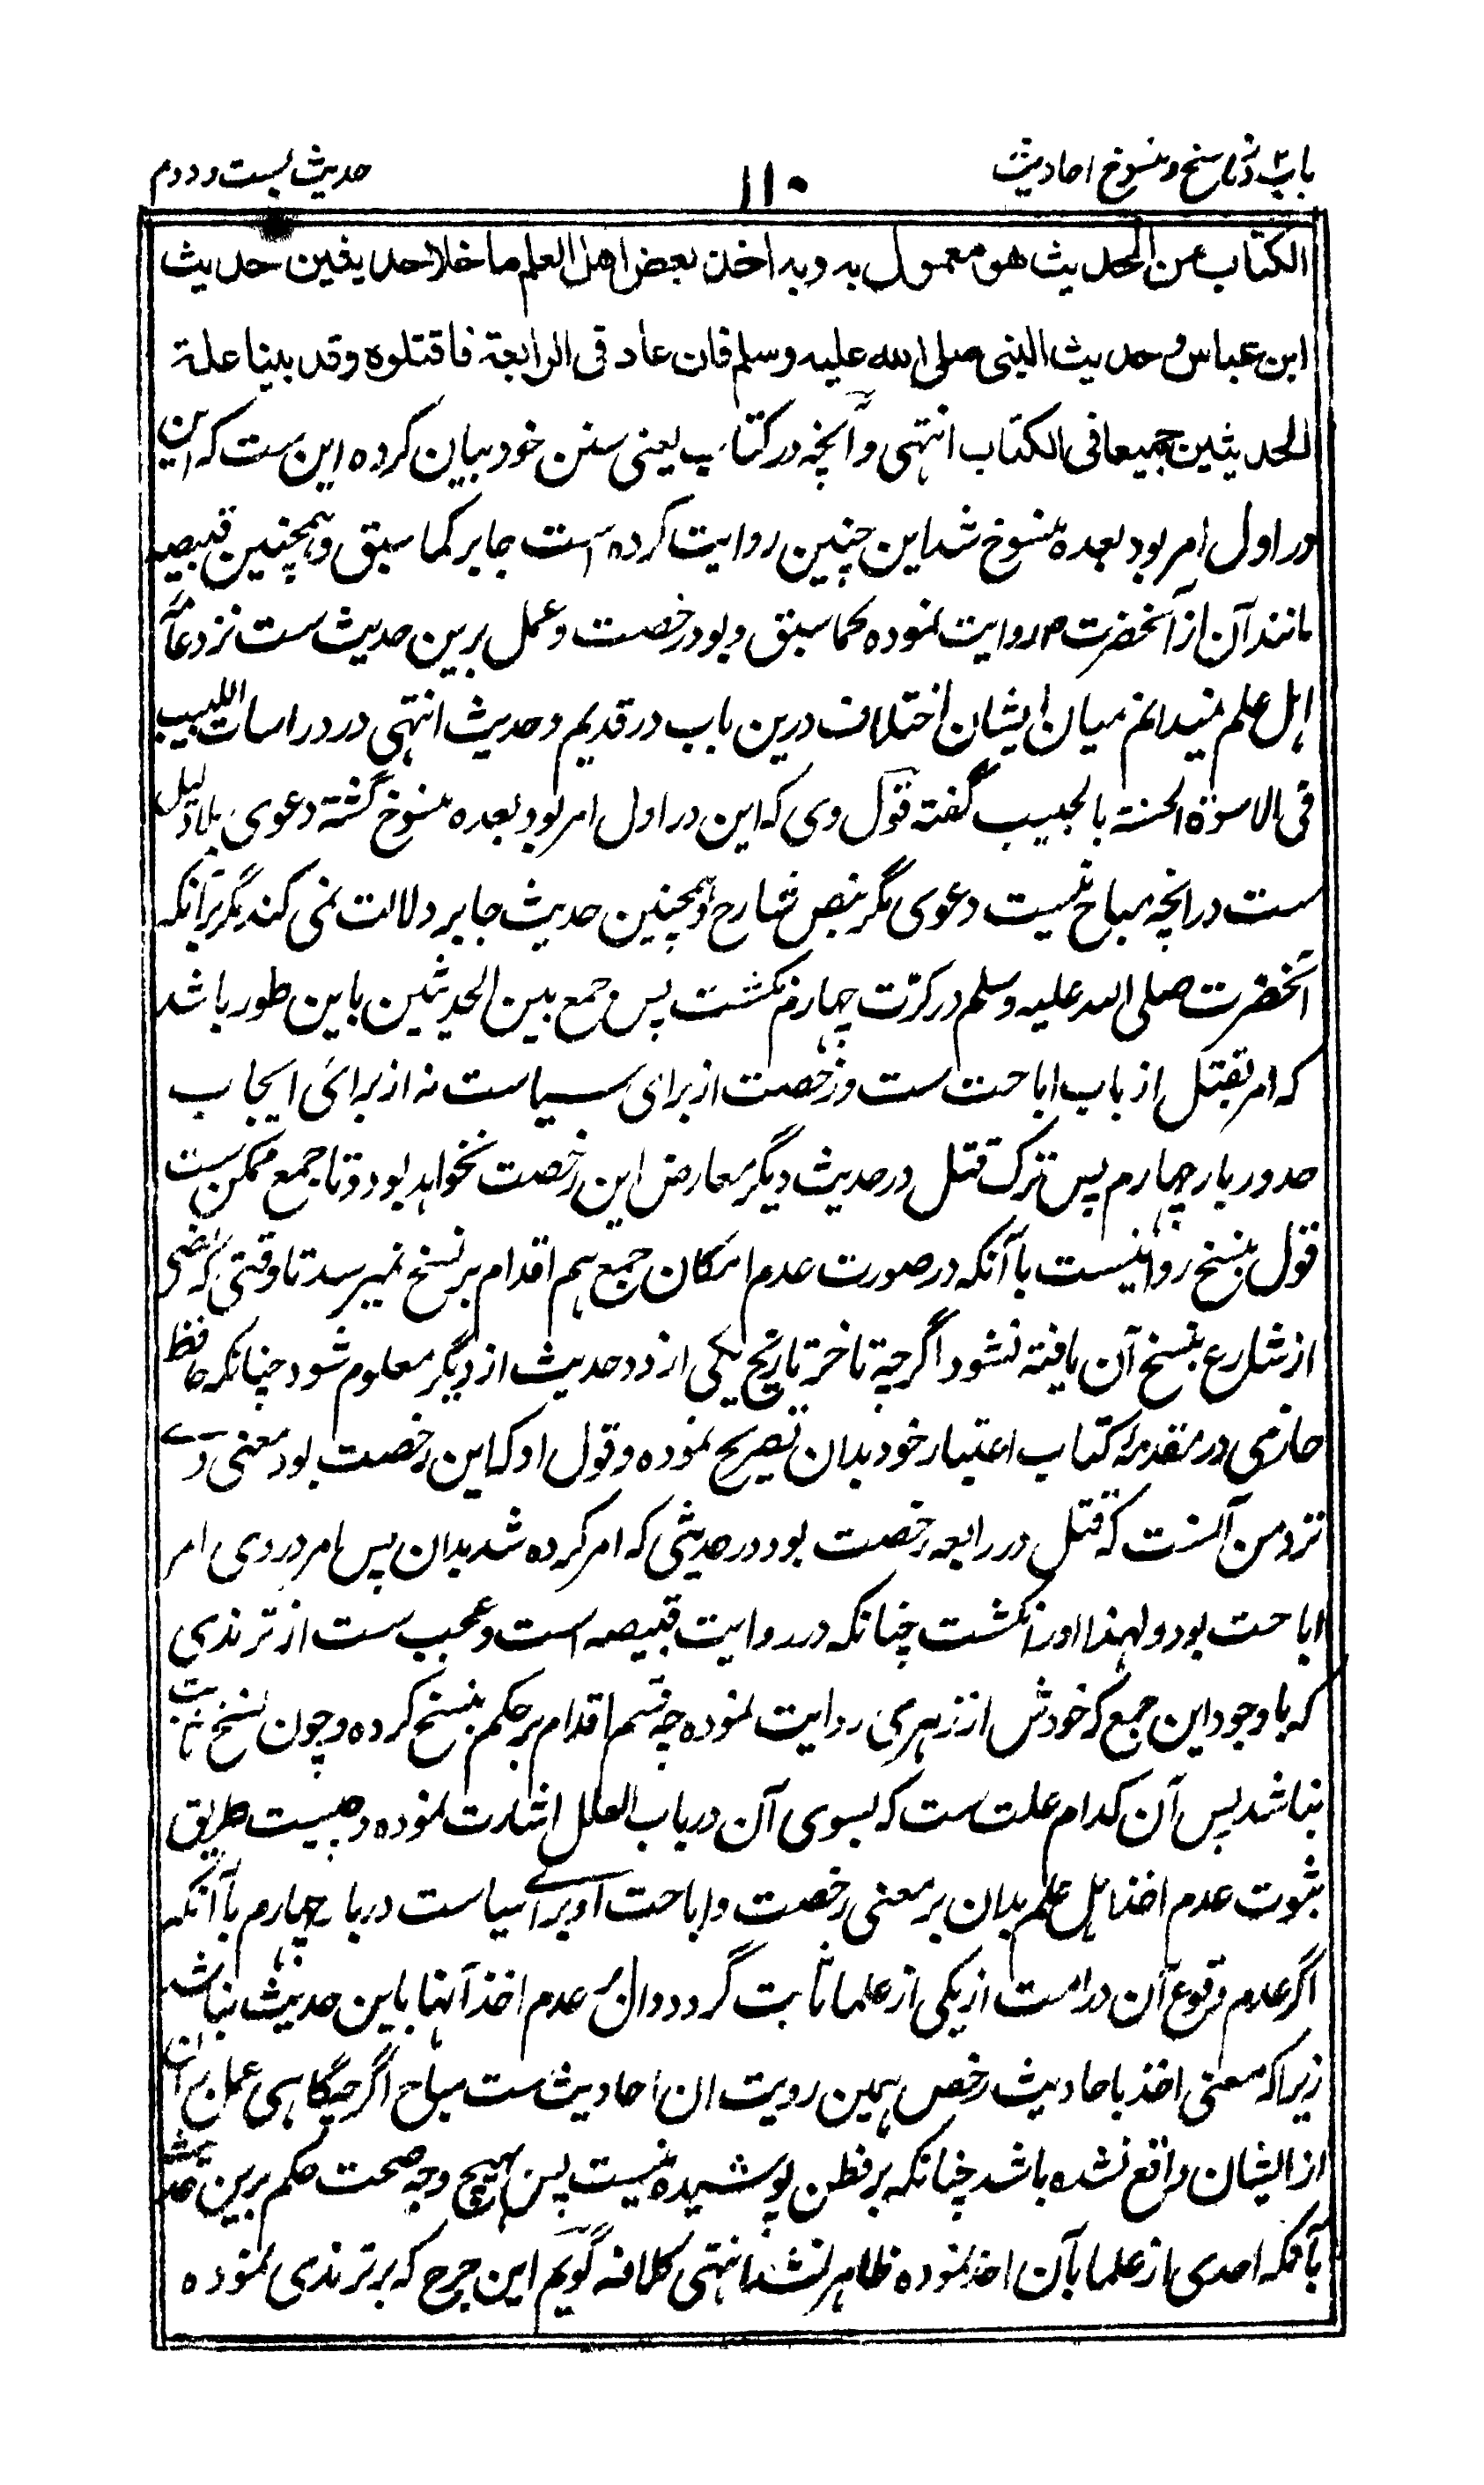 باب ۲ در ناسخ و منسوخ احادیث
۱۱۰
حدیث بست و دوم
الکتاب من الحدیث هو معمول به وبه اخذ بعض اهل العلم ما خلا حدیثین حدیث
ابن عباس و حدیث النبی صلی الله علیه وسلم فان عاد فی الرابعة فاقتلوه وقد بینا علة
الحدیثین جمیعا فی الکتاب انتهی و آنچه در کتاب یعنی سنن خود بیان کرده این ست که این
در اول امر بود بعده منسوخ شد این چنین روایت کرده است جابر کما سبق و همچنین قبیصه
مانند آن از آنحضرت صم روایت نموده کما سبق و بود رخصت و عمل برین حدیث ست نزد عامه
اهل علم نمیدانم میان ایشان اختلاف درین باب در قدیم و حدیث انتهی در دراسات اللبیب
فی الاسوة الحسنة بالحبیب گفته قول وی که این در اول امر بود و بعده منسوخ گشته دعوی بلا دلیل
ست در آنچه مباح نیست دعوی مگر بنص شارح و همچنین حدیث جابر دلالت نمی کند مگر بر آنکه
آنحضرت صلی الله علیه وسلم در کرّت چهارم نکشت پس جمع بین الحدیثین باین طور باشد
که امر بقتل از باب اباحت ست و رخصت از برای سیاست نه از برای ایجاب
صدور بار چهارم پس ترک قتل در حدیث دیگر معارض این رخصت نخواهد بود و تا جمع ممکن ست
قول بنسخ روا نیست با آنکه در صورت عدم امکان جمع هم اقدام بر نسخ نمیرسد تا وقتی که نصی
از شارع بنسخ آن یافته نشود اگرچه تاخر تاریخ یکی از دو حدیث از دیگر معلوم شود چنانکه حافظ
حازمی در مقدمهٔ کتاب اعتبار خود بدان تصریح نموده و قول او که این رخصت بود معنی وے
نزد من آنست که قتل در رابعه رخصت بود در حدیثی که امر کرده شد بدان پس امر در وی امر
اباحت بود و لهذا او را نکشت چنانکه در روایت قبیصه است و عجب ست از ترمذی
که با وجود این جمع که خودش از زهری روایت نموده چه قسم اقدام بر حکم بنسخ کرده و چون نسخ ثابت
نباشد پس آن کدام علت ست که بسوی آن در باب العلل اشارت نموده و چیست طریق
ثبوت عدم اخذ اهل علم بدان بر معنی رخصت و اباحت او برائے سیاست در بار چهارم با آنکه
اگر عدم وقوع آن در امت از یکی از علما ثابت گردد دال بر عدم اخذ آنها باین حدیث نباشد
زیرا که معنی اخذ باحادیث رخص همین رویت ان احادیث ست مباح اگر چه گاهی عمل بر آن
از ایشان واقع نشده باشد چنانکه بر فطن پوشیده نیست پس هیچ وجه صحت حکم برین حدیث
بآنکه احدی از علما بآن اخذ ننموده ظاهر نشد انتهی کلامه گویم این جرح که بر ترمذی نموده